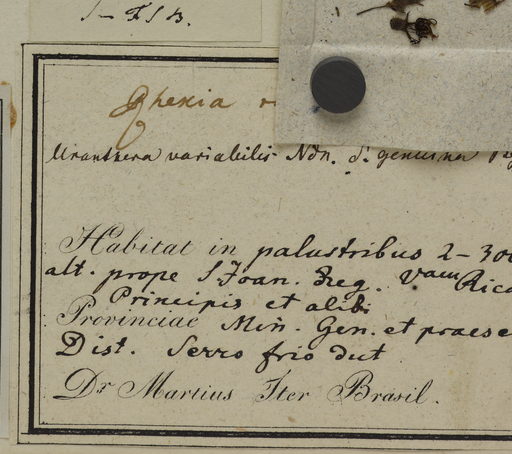 Rhexia
Uranthera variabilis Ndn. S. genuina
Habitat in palustribus 2-300
alt. prope S Joan. Reg. Vam Rica
Principis et alibi
Provinciae Min. Gen. et praese
Dist. Serro frio dict
Dr Martius Iter Brasil.